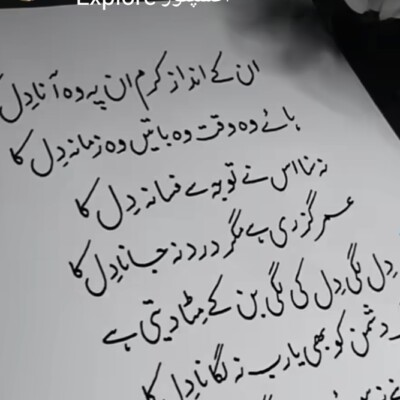 Explore
ان کے اندازِ کرم ان پہ وہ آنا دِل
ہائے وہ وقت وہ باتیں وہ زمانہ دِل کا
نہ سنا اس نے توجہ سے فسانہ دِل کا
عمر گزری ہے مگر درد نہ جانا دِل کا
دِل لگی دِل کی لگی بن کے مِٹا دیتی ہے
دشمن کو بھی یارب نہ لگانا دِل کا